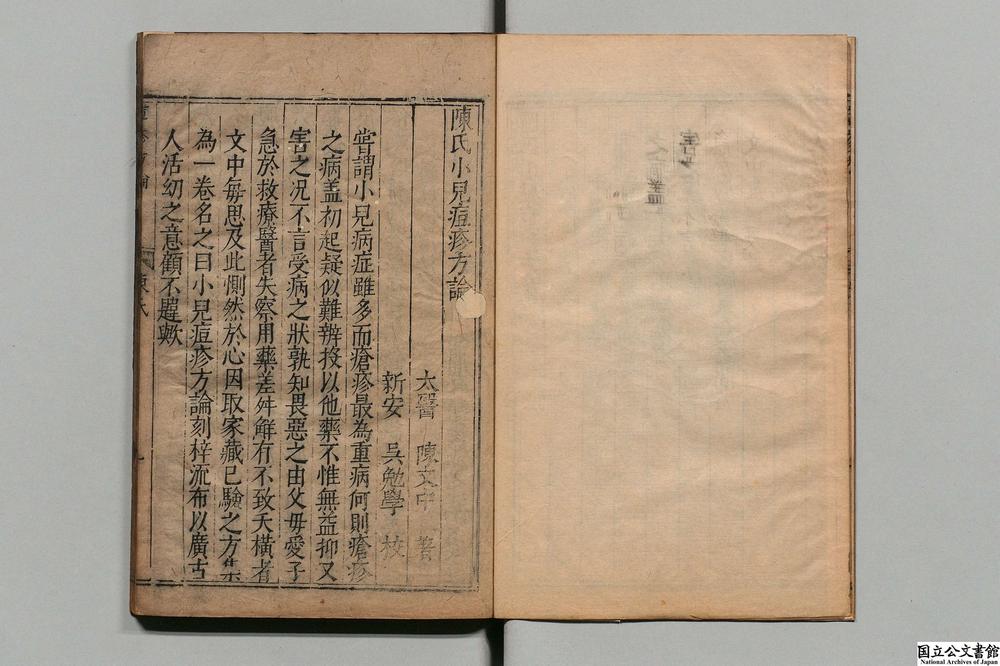 陳氏小兒痘疹方論
太醫 陳文中 著
新安 吳勉學 校
嘗謂小兒病症雖多而瘡疹最為重病何則瘡疹
之病盖初起疑似難辨投以他藥不惟無益抑又
害之况不言受病之狀孰知畏惡之由父毋愛子
急於救療醫者失察用藥差舛鮮有不致夭橫者
文中每思及此惻然於心因取家藏已驗之方集
為一卷名之曰小兒痘疹方論刻梓流布以廣古
人活幼之意顧不韙歟
陳氏
一
国立公文書館
National Archives of Japan